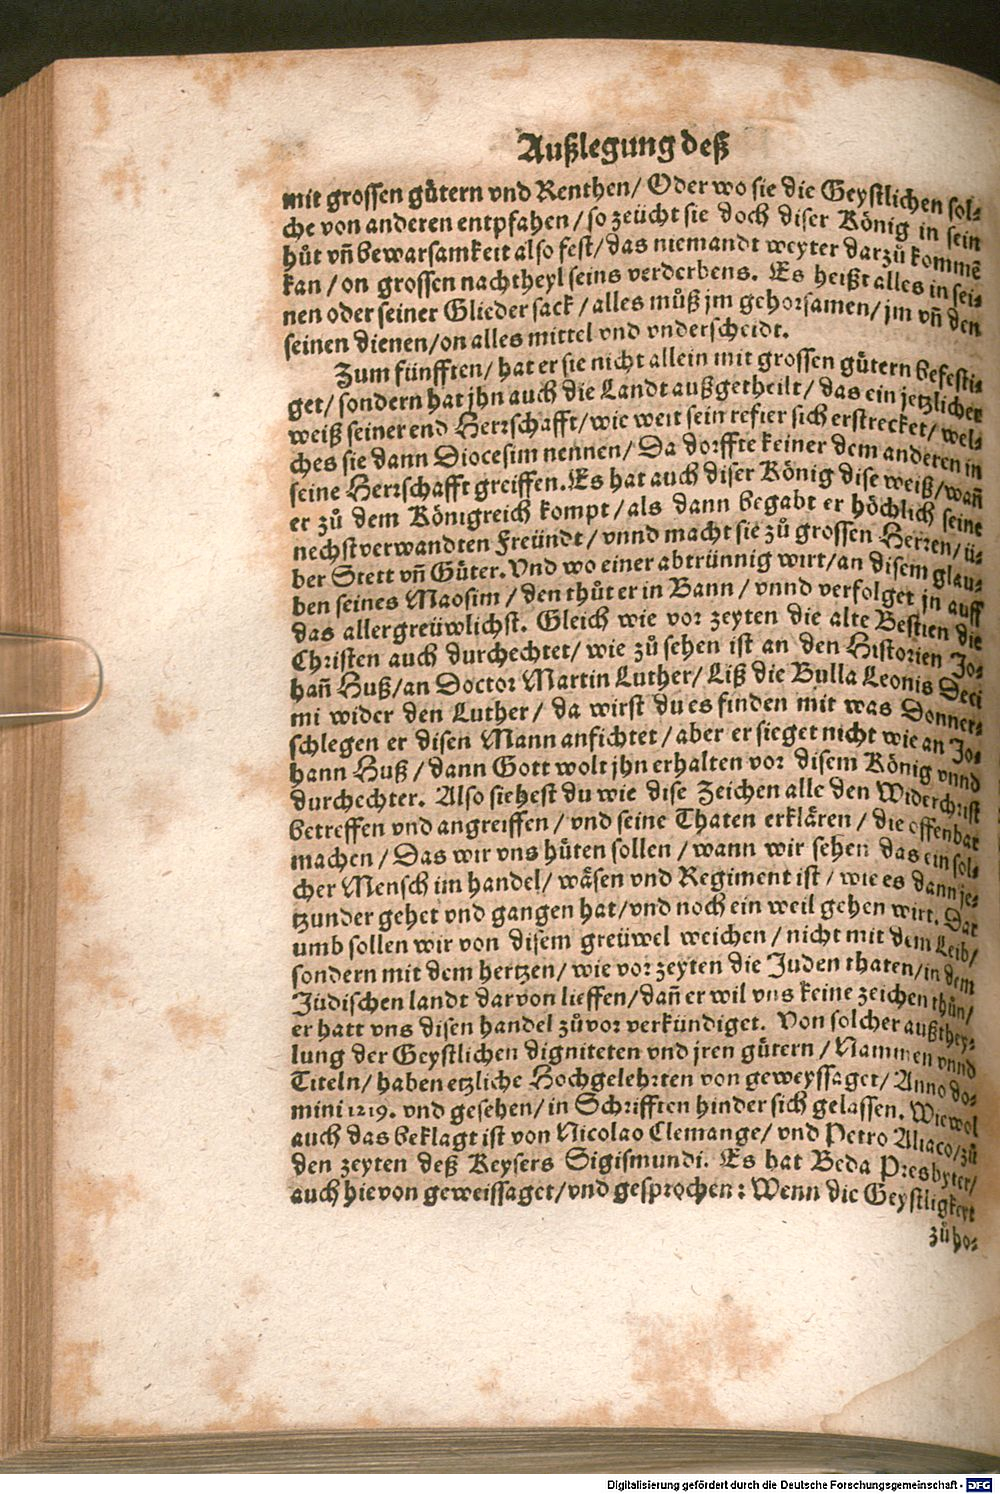 Außlegung deß
mit grossen gütern vnd Renthen/ Oder wo sie die Geystlichen sol⸗
che von anderen entpfahen/ so zeücht sie doch diser König in sein
hůt vñ bewarsamkeit also fest/ das niemandt weyter darzů kommẽ
kan/ on grossen nachtheyl seins verderbens. Es heißt alles in sei⸗
nen oder seiner Glieder sack/ alles můß jm gehorsamen/ jm vñ den
seinen dienen/ on alles mittel vnd vnderscheidt.
Zum fünfften/ hat er sie nicht allein mit grossen gütern befesti⸗
get/ sondern hat jhn auch die Landt außgetheilt/ das ein jetzlicher
weiß seiner end Herrschafft/ wie weit sein refier sich erstrecket/ wel⸗
ches sie dann Diocesim nennen/ Da dorffte keiner dem anderen in
seine Herrschafft greiffen. Es hat auch diser König dise weiß/ wañ
er zů dem Königreich kompt/ als dann begabt er höchlich seine
nechstverwandten Freündt/ vnnd macht sie zů grossen Herren/ ü⸗
ber Stett vñ Güter. Vnd wo einer abtrünnig wirt/ an disem glau⸗
ben seines Maosim/ den thůt er in Bann/ vnnd verfolget jn auff
das allergreüwlichst. Gleich wie vor zeyten die alte Bestien die
Christen auch durchechtet/ wie zů sehen ist an den Historien Jo⸗
hañ Huß/ an Doctor Martin Luther/ Liß die Bulla Leonis Deci
mi wider den Luther/ da wirst du es finden mit was Donner⸗
schlegen er disen Mann anfichtet/ aber er sieget nicht wie an Jo⸗
hann Huß/ dann Gott wolt jhn erhalten vor disem König vnnd
durchechter. Also siehest du wie dise Zeichen alle den Widerchrist
betreffen vnd angreiffen/ vnd seine Thaten erklären/ die offenbar
machen/ Das wir vns hüten sollen/ wann wir sehen das ein sol⸗
cher Mensch im handel/ wäsen vnd Regiment ist/ wie es dann je⸗
tzunder gehet vnd gangen hat/ vnd noch ein weil gehen wirt. Dar
umb sollen wir von disem greüwel weichen/ nicht mit dem Leib/
sondern mit dem hertzen/ wie vor zeyten die Juden thaten/ in dem
Jüdischen landt darvon lieffen/ dañ er wil vns keine zeichen thůn/
er hatt vns disen handel zůvor verkündiget. Von solcher außthey⸗
lung der Geystlichen digniteten vnd jren gütern/ Nammen vnnd
Titeln/ haben etzliche Hochgelehrten von geweyssaget/ Anno do⸗
mini 1219. vnd gesehen/ in Schrifften hinder sich gelassen. Wiewol
auch das beklagt ist von Nicolao Clemange/ vnd Petro Aliaco/ zů
den zeyten deß Keysers Sigismundi. Es hat Beda Presbyter/
auch hievon geweissaget/ vnd gesprochen: Wenn die Geystligkeyt
zů ho⸗
Digitalisierung gefördert durch die Deutsche Forschungsgemeinschaft - DFG